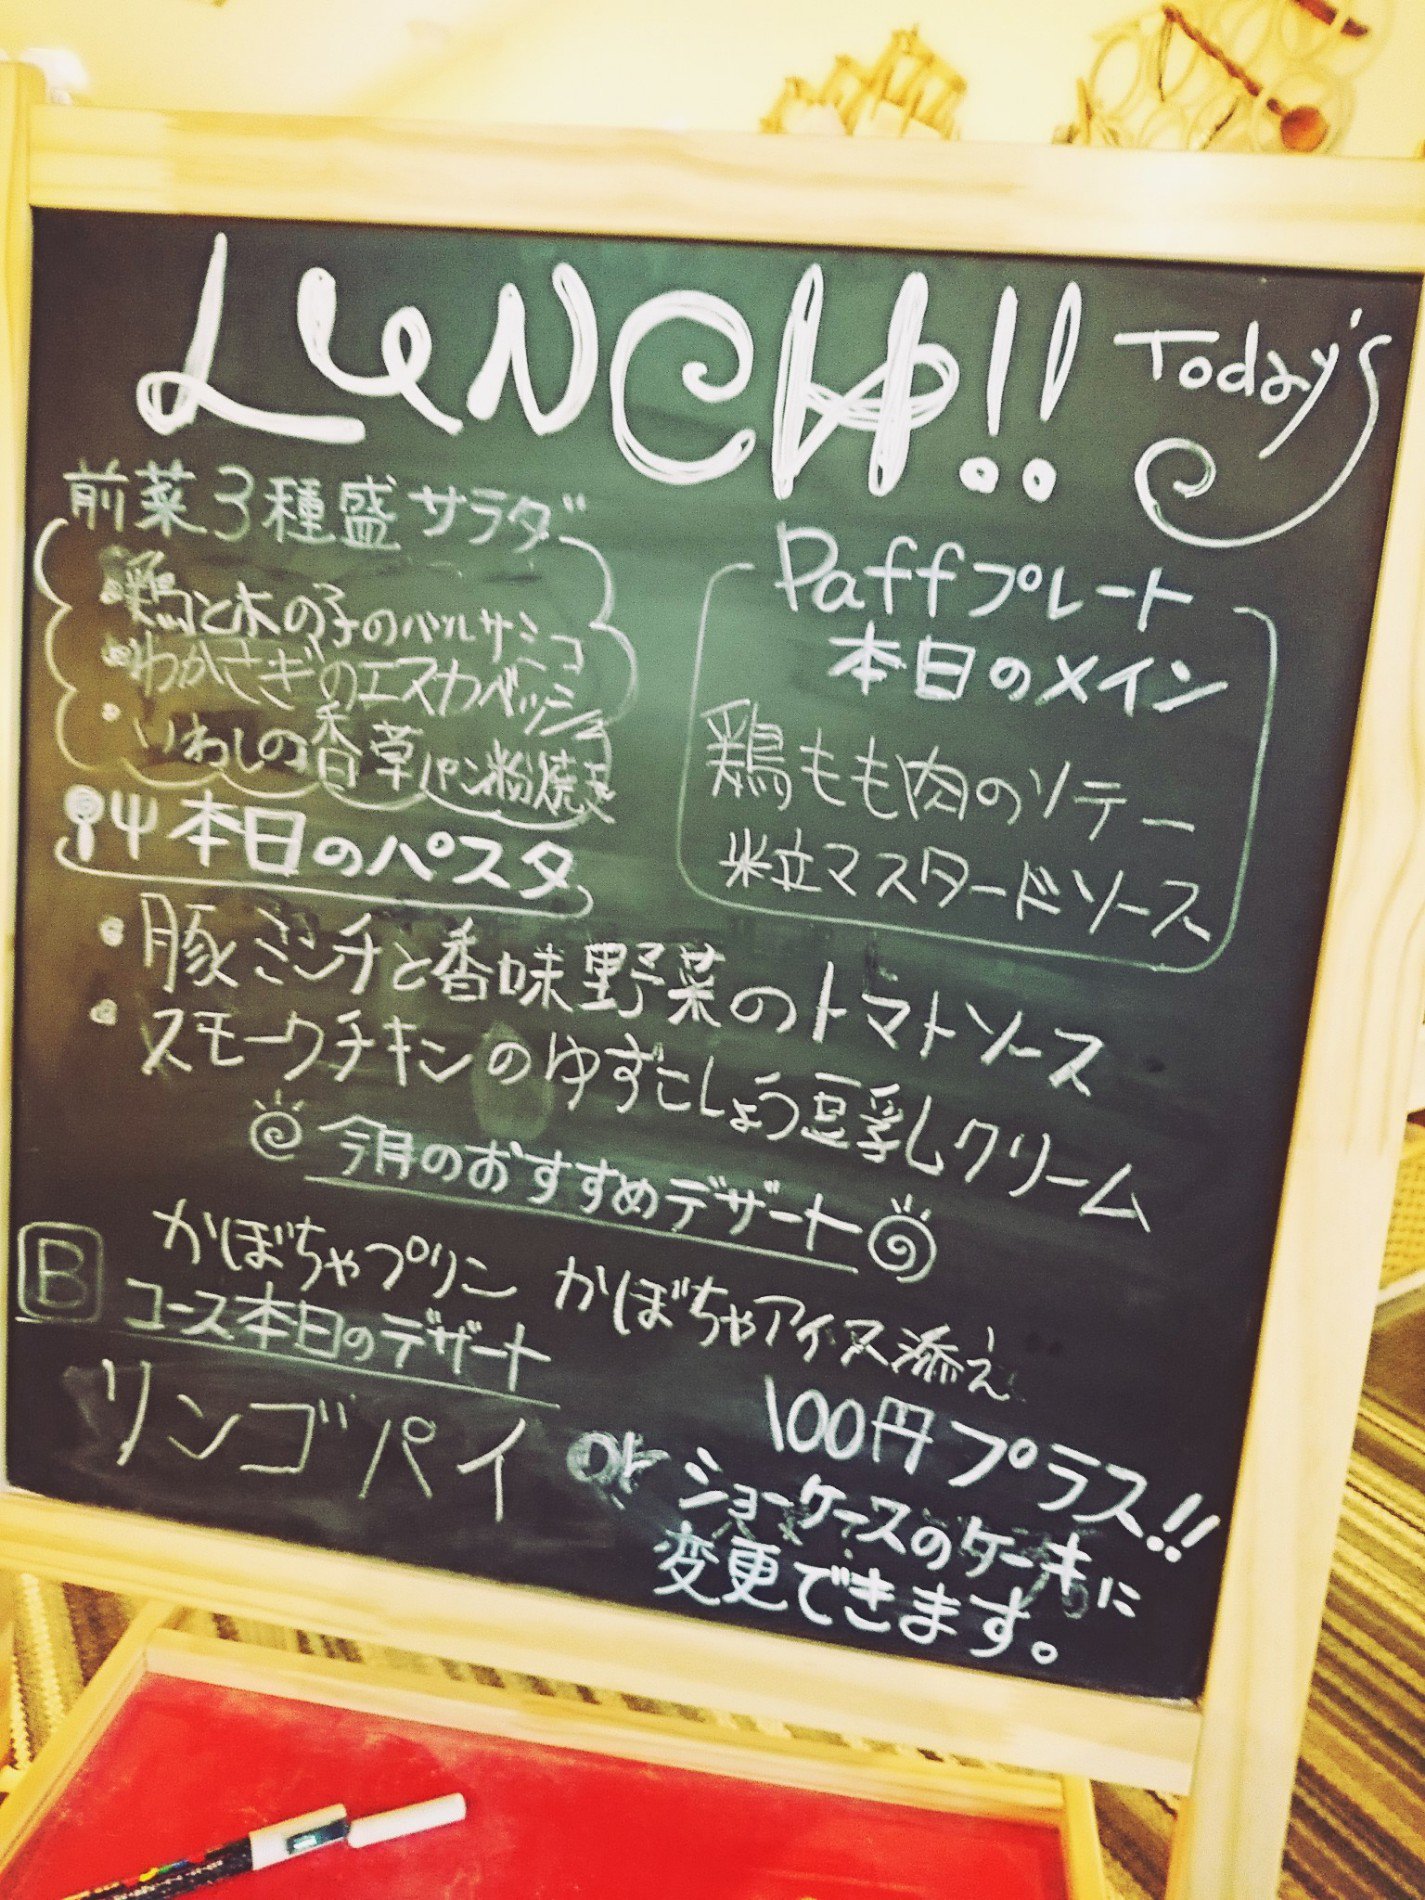 LUNCH!! Today's
前菜3種盛サラダ
・鶏と木の子のバルサミコ
・わかさぎのエスカベッシュ
・いわしの香草パン粉焼き
Paffプレート
本日のメイン
鶏もも肉のソテー
粒マスタードソース
本日のパスタ
・豚ミンチと香味野菜のトマトソース
・スモークチキンのゆずこしょう豆乳クリーム
今月のおすすめデザート
かぼちゃプリン かぼちゃアイス添え
B コース本日のデザート
リンゴパイ or
100円プラス!!
ショーケースのケーキに
変更できます。